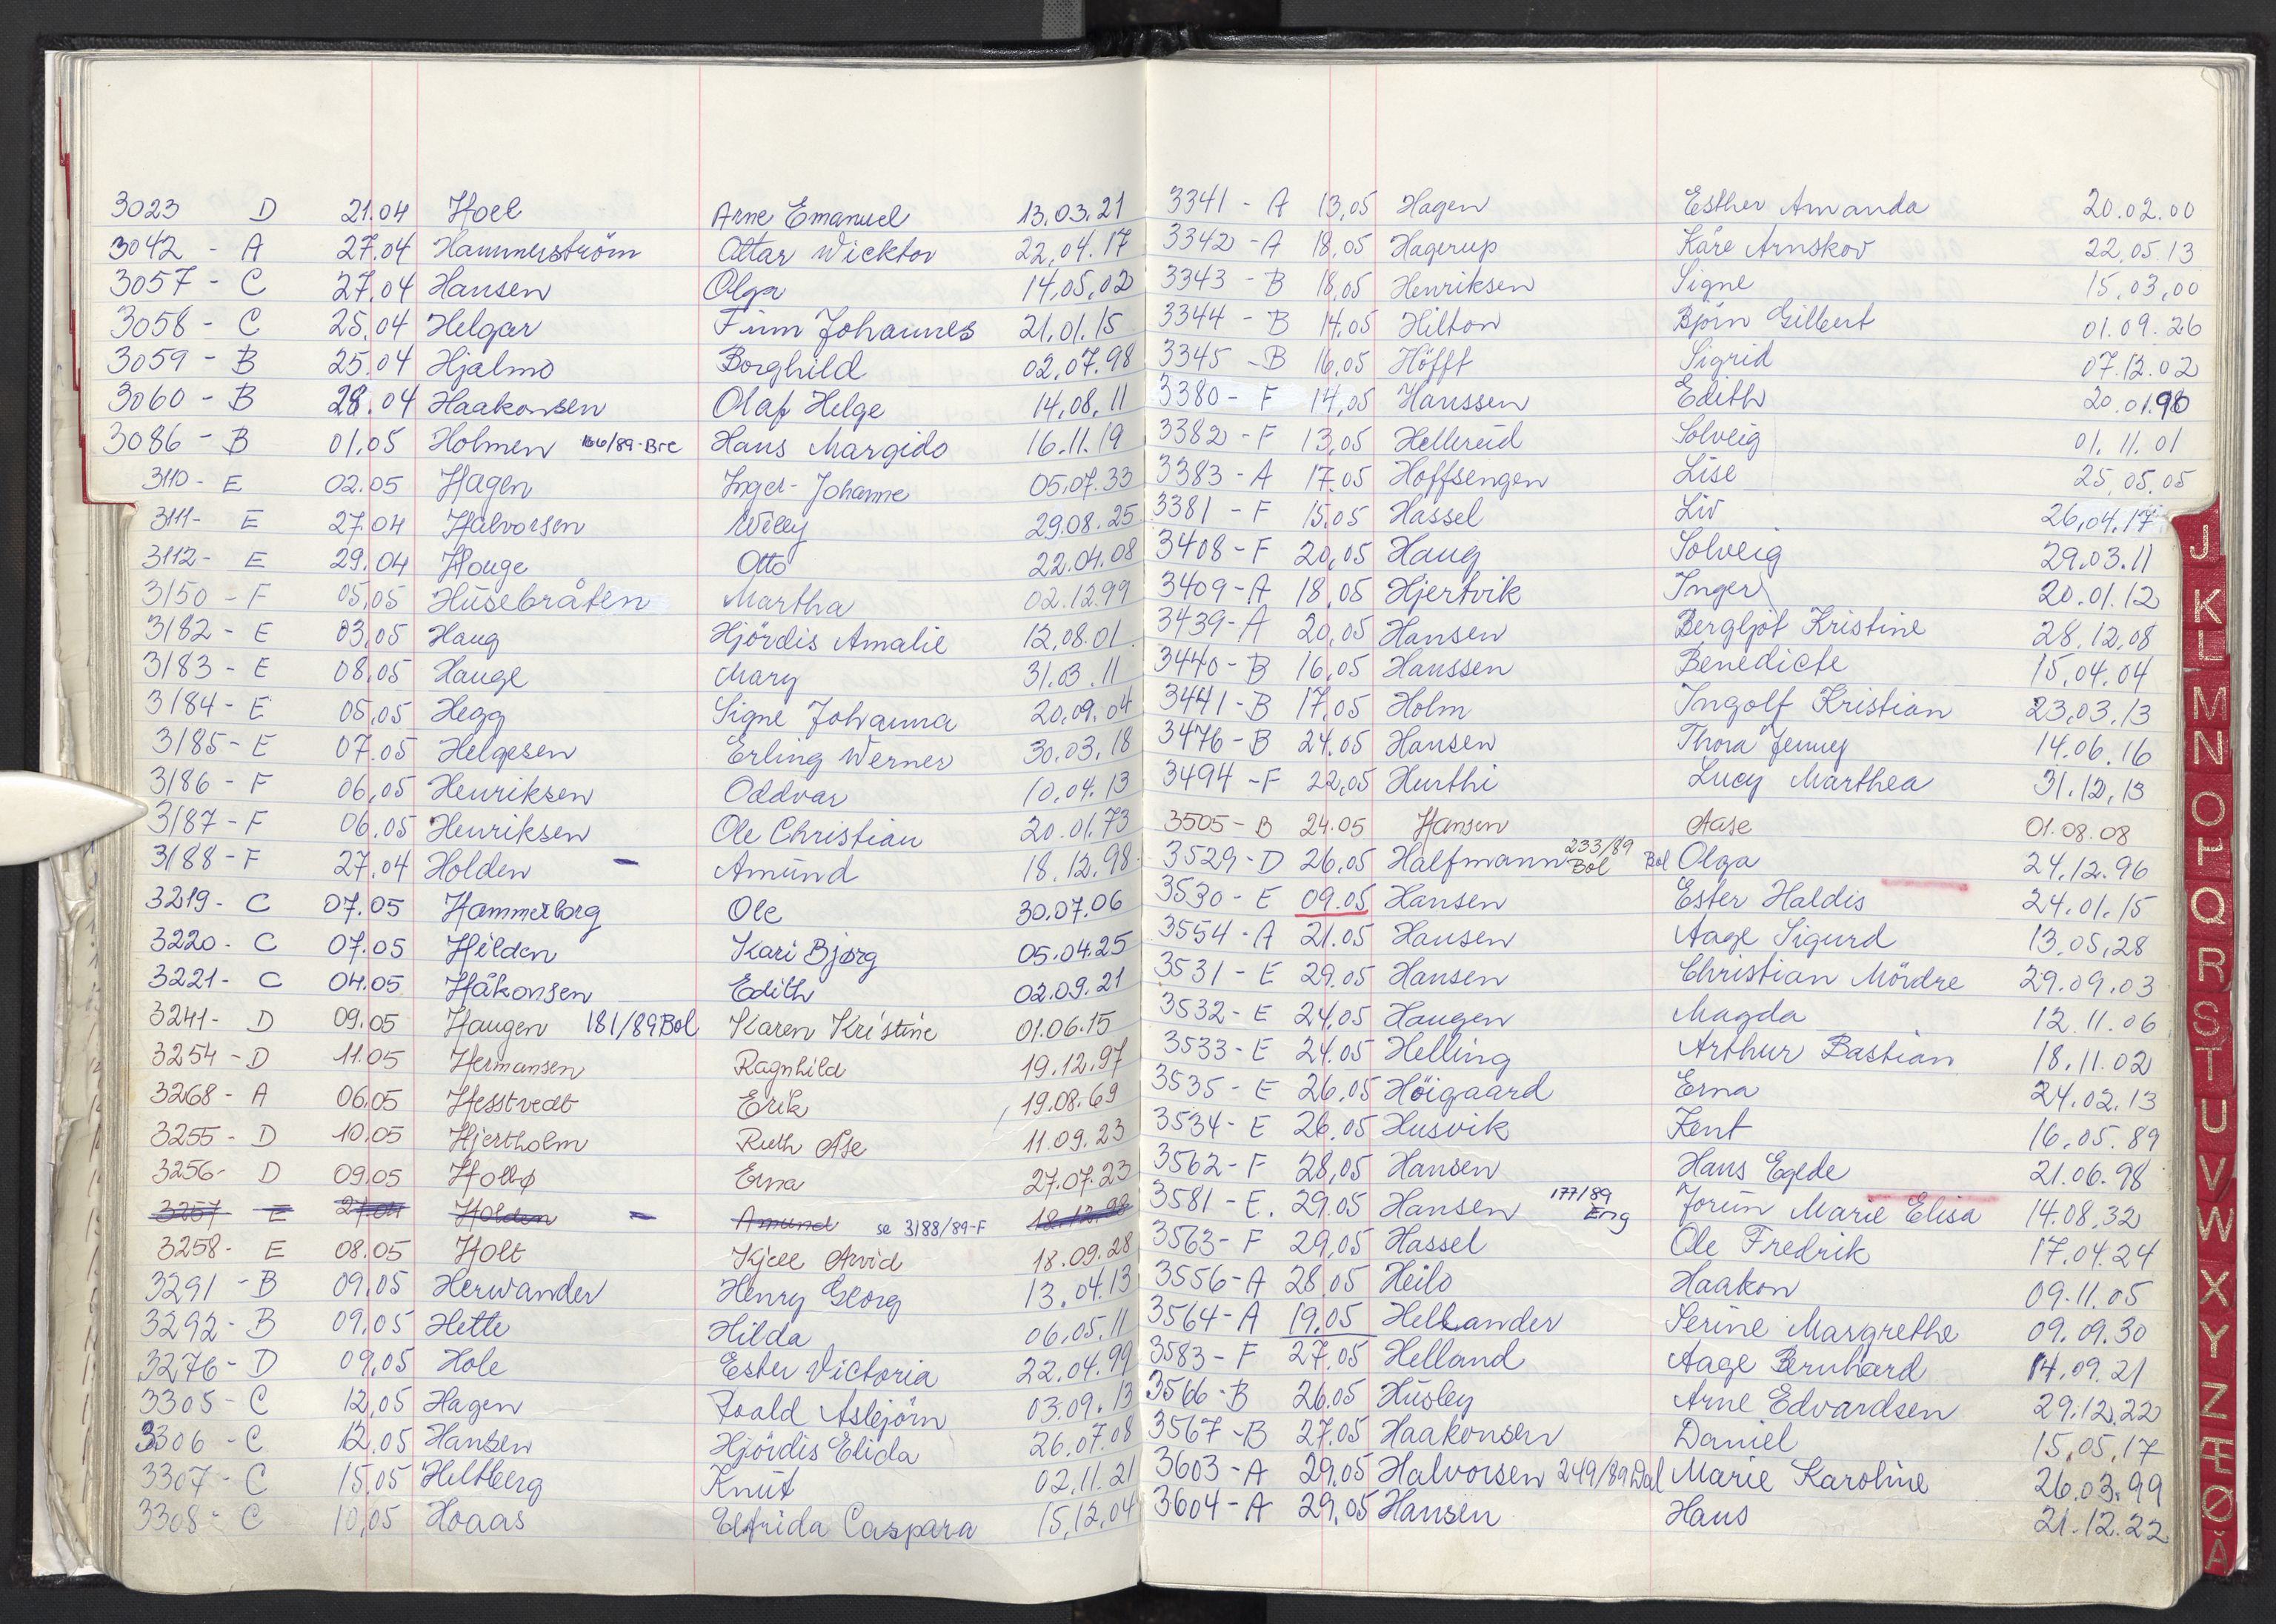 3023 D 21.04 Hoel Arne Emanuel 13.03.21
3042 - A 27.04 Hammerström Ottar Wicktor 22.04.17
3057 - C 27.04 Hansen Olga 14.05.02
3058 - C 25.04 Helgar Finn Johannes 21.01.15
3059 - B 25.04 Hjalmo Borghild 02.07.98
3060 - B 28.04 Haakonsen Olaf Helge 14.08.11
3086 - B 01.05 Holmen 166/89-Bre Hans Margido 16.11.19
3110 - E 02.05 Hagen Inger-Johanne 05.07.33
3111- E 27.04 Halvorsen Willy 29.08.25
3112- E 29.04 Hauge Otto 22.04.08
3150 - F 05.05 Husebråten Martha 02.12.99
3182 - E 03.05 Haug Hjördis Amalie 12.08.01
3183 - E 08.05 Hauge Mary 31.03.11
3184 - E 05.05 Hegg Signe Johanna 20.09.04
3185 - E 07.05 Helgesen Erling Werner 30.03.18
3186 - F 06.05 Henriksen Oddvar 10.04.13
3187 - F 06.05 Henriksen Ole Christian 20.01.73
3188 - F 27.04 Holden - Amund 18.12.98
3219 - C 07.05 Hammerborg Ole 30.07.06
3220 - C 07.05 Hilden Kari Bjørg 05.04.25
3221- C 04.05 Håkonsen Edith 02.09.21
3241- D 09.05 Haugen 181/89 Bol Karen Kristine 01.06.15
3254 - D 11.05 Hermansen Ragnhild 19.12.97
3268 - A 06.05 Hesstvedt Erik 19.08.69
3255 - D 10.05 Hjertholm Ruth Åse 11.09.23
3256- D 09.05 Holbø Erna 27.07.23
3257 E 27.04 Holden - Amund se 3188/89-F 18.12.98
3258- E 08.05 Holt Kjell Arvid 18.09.28
3291 - B 09.05 Herwander Henry Georg 13.04.13
3292 - B 09.05 Hette Hilda 06.05.11
3276 - D 09.05 Hole Ester Victoria 22.04.99
3305 - C 12.05 Hagen Roald Asbjörn 03.09.13
3306 - C 12.05 Hansen Hjördis Elida 26.07.08
3307 - C 15.05 Heltberg Knut 02.11.21
3308 - C 10.05 Hoaas Elfrida Caspara 15.12.04
3341 - A 13.05 Hagen Esther Amanda 20.02.00
3342 - A 18.05 Hagerup Kåre Arnskov 22.05.13
3343 - B 18.05 Henriksen Signe 15.03.00
3344 - B 14.05 Hilton Björn Gilbert 01.09.26
3345 - B 16.05 Höfft Sigrid 07.12.02
3380 - F 14.05 Hanssen Edith 20.01.90
3382 - F 13.05 Hellereid Solveig 01.11.01
3383 - A 17.05 Hoffsengen Lise 25.05.05
3381 - F 15.05 Hassel Liv 26.04.17
3408 - F 20.05 Haug Solveig 29.03.11
3409 - A 18.05 Hjertvik Inger 20.01.12
3439 - A 20.05 Hansen Bergljot Kristine 28.12.08
3440 - B 16.05 Hanssen Benedicte 15.04.04
3441 - B 17.05 Holm Ingolf Kristian 23.03.13
3476 - B 24.05 Hansen Thora Jenny 14.06.16
3494 - F 22.05 Hurthi Lucy Marthea 31.12.13
3505 - B 24.05 Hansen Aase 01.08.08
3529 - D 26.05 Halfmann 233/89 Bol Bol Olga 24.12.96
3530 - E 09.05 Hansen Ester Haldis 24.01.15
3554 - A 21.05 Hansen Aage Sigurd 13.05.28
3531 - E 29.05 Hansen Christian Mördre 29.09.03
3532 - E 24.05 Haugen Magda 12.11.06
3533 - E 24.05 Helling Arthur Bastian 18.11.02
3535 - E 26.05 Höigaard Erna 24.02.13
3534 - E 26.05 Husvik Kent 16.05.89
3562 - F 28.05 Hansen Hans Egede 21.06.98
3581 - E. 29.05 Hansen 177/89 Eng Jorun Marie Elisa 14.08.32
3563 - F 29.05 Hassel Ole Fredrik 17.04.24
3556 - A 28.05 Heilo Haakon 09.11.05
3564 - A 19.05 Hellander Serine Margrethe 09.09.30
3583 - F 27.05 Helland Aage Bernhard 14.09.21
3566 - B 26.05 Husley Arne Edvardsen 29.12.22
3567 - B 27.05 Haakonsen Daniel 15.05.17
3603 - A 29.05 Halvorsen 249/89 Dal Marie Karoline 26.03.99
3604 - A 29.05 Hansen Hans 21.12.22
J
K
L
M
N
O
P
Q
R
S
T
U
V
W
X
Y
Z
Æ
Ø
Å